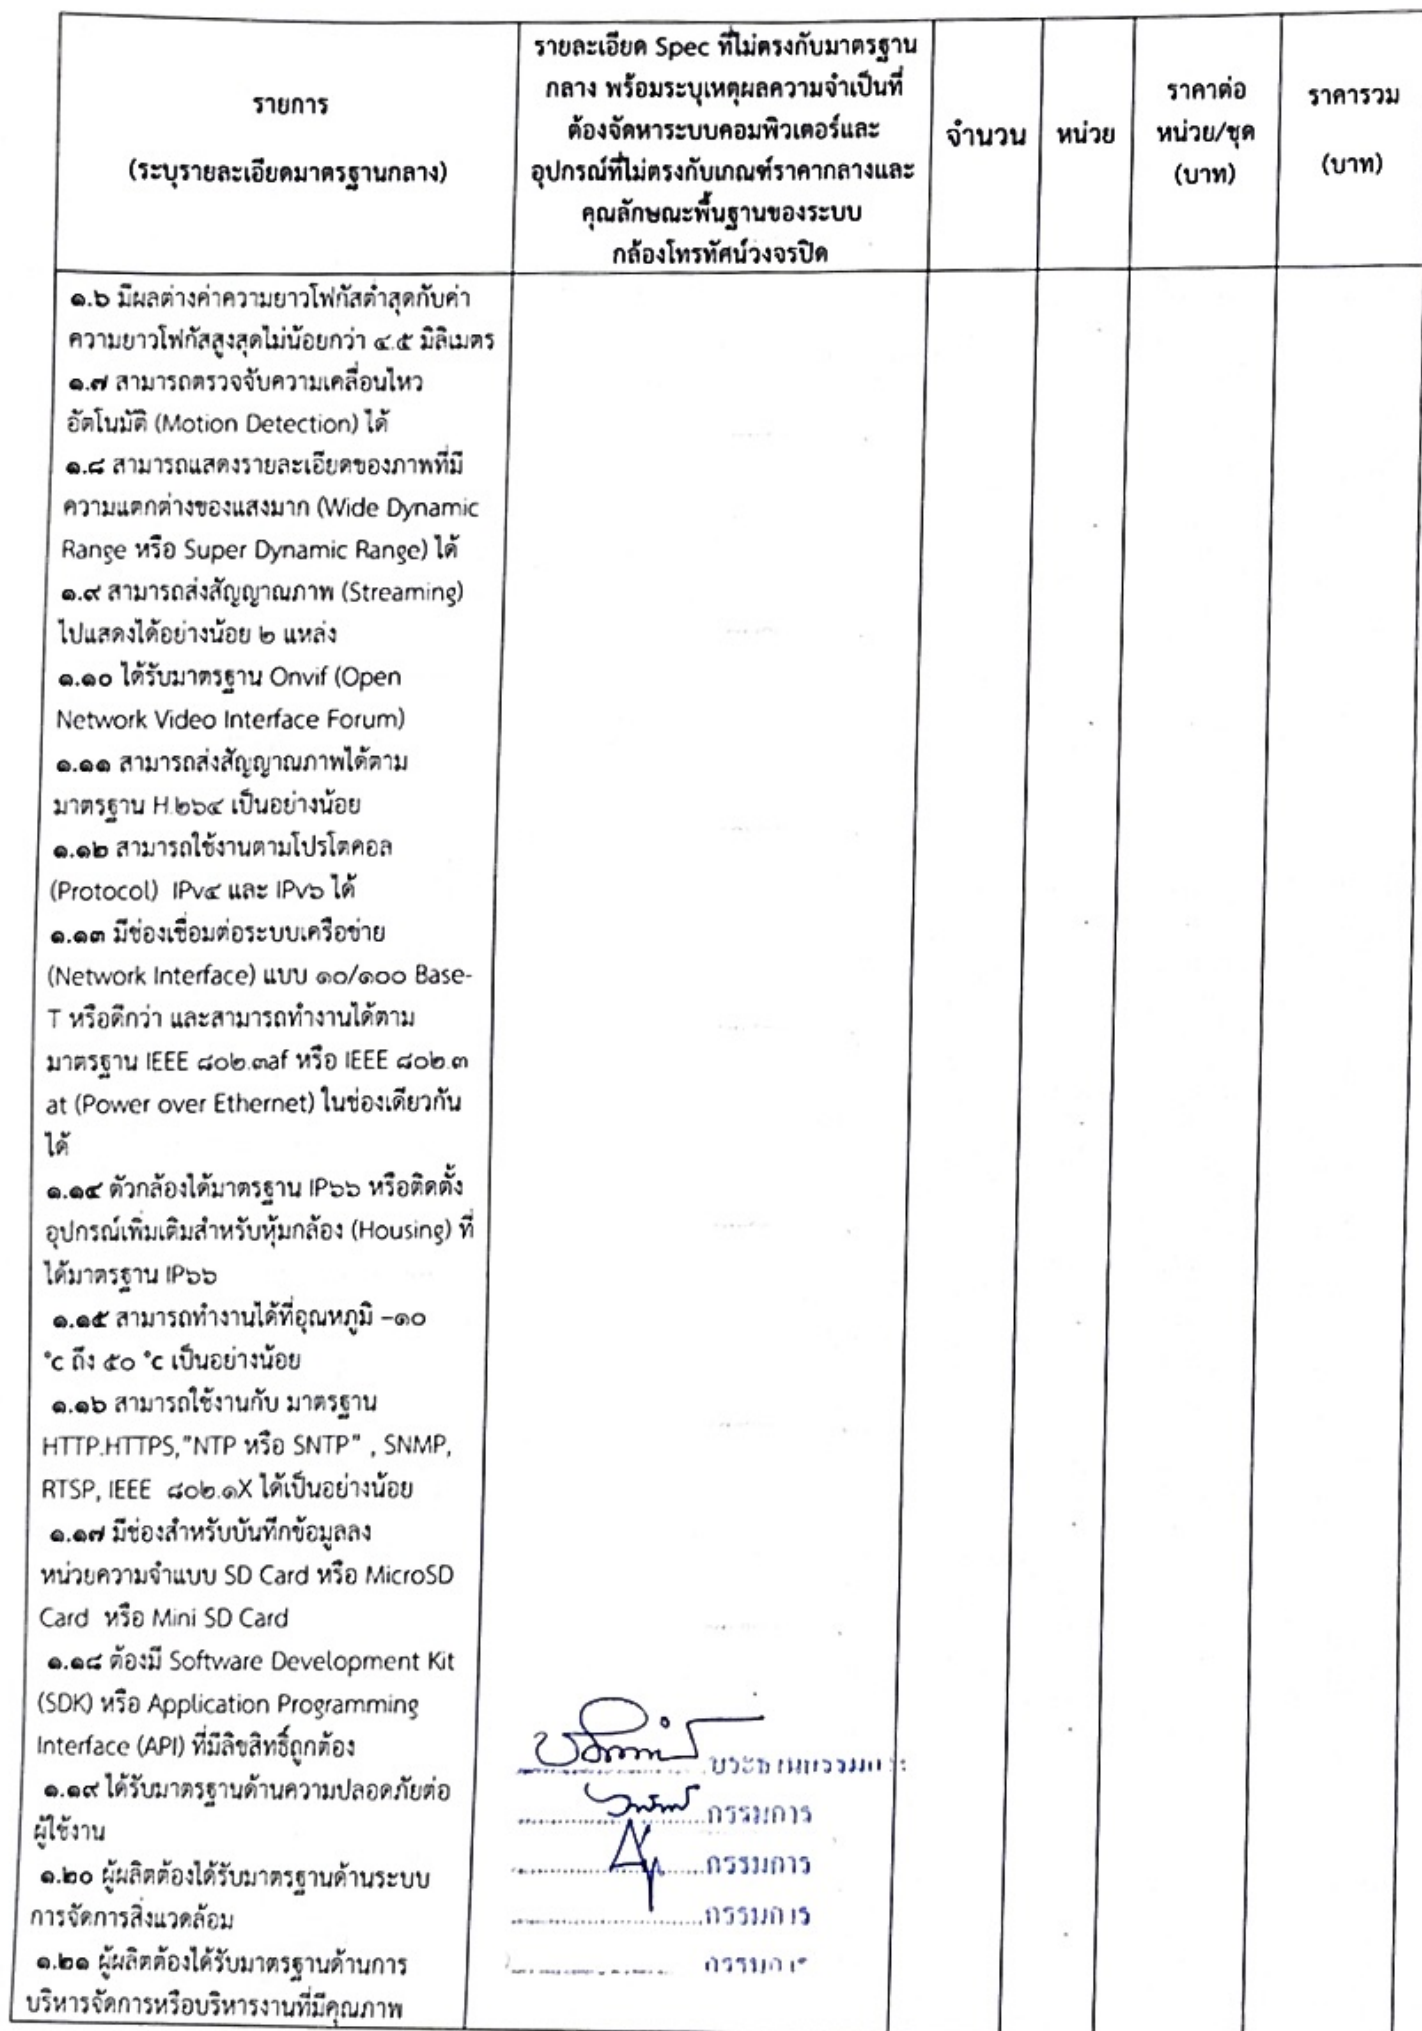 รายการ
(ระบุรายละเอียดมาตรฐานกลาง)
รายละเอียด Spec ที่ไม่ตรงกับมาตรฐาน
กลาง พร้อมระบุเหตุผลความจำเป็นที่
ต้องจัดหาระบบคอมพิวเตอร์และ
อุปกรณ์ที่ไม่ตรงกับเกณฑ์ราคากลางและ
คุณลักษณะพื้นฐานของระบบ
กล้องโทรทัศน์วงจรปิด
จำนวน
หน่วย
ราคาต่อ
หน่วย/ชุด
(บาท)
ราคารวม
(บาท)
๑.๖ มีผลต่างค่าความยาวโฟกัสต่ำสุดกับค่า
ความยาวโฟกัสสูงสุดไม่น้อยกว่า ๔.๕ มิลิเมตร
๑.๗ สามารถตรวจจับความเคลื่อนไหว
อัตโนมัติ (Motion Detection) ได้
๑.๘ สามารถแสดงรายละเอียดของภาพที่มี
ความแตกต่างของแสงมาก (Wide Dynamic
Range หรือ Super Dynamic Range) ได้
๑.๙ สามารถส่งสัญญาณภาพ (Streaming)
ไปแสดงได้อย่างน้อย ๒ แหล่ง
๑.๑๐ ได้รับมาตรฐาน Onvif (Open
Network Video Interface Forum)
๑.๑๑ สามารถส่งสัญญาณภาพได้ตาม
มาตรฐาน H.๒๖๔ เป็นอย่างน้อย
๑.๑๒ สามารถใช้งานตามโปรโตคอล
(Protocol) IPv๔ และ IPv๖ ได้
๑.๑๓ มีช่องเชื่อมต่อระบบเครือข่าย
(Network Interface) แบบ ๑๐/๑๐๐ Base-
T หรือดีกว่า และสามารถทำงานได้ตาม
มาตรฐาน IEEE ๘๐๒.๓af หรือ IEEE ๘๐๒.๓
at (Power over Ethernet) ในช่องเดียวกัน
ได้
๑.๑๔ ตัวกล้องได้มาตรฐาน IP๖๖ หรือติดตั้ง
อุปกรณ์เพิ่มเติมสำหรับหุ้มกล้อง (Housing) ที่
ได้มาตรฐาน IP๖๖
๑.๑๕ สามารถทำงานได้ที่อุณหภูมิ -๑๐
°c ถึง ๕๐ °c เป็นอย่างน้อย
๑.๑๖ สามารถใช้งานกับ มาตรฐาน
HTTP.HTTPS,"NTP หรือ SNTP" , SNMP,
RTSP, IEEE ๘๐๒.๑X ได้เป็นอย่างน้อย
๑.๑๗ มีช่องสำหรับบันทึกข้อมูลลง
หน่วยความจำแบบ SD Card หรือ MicroSD
Card หรือ Mini SD Card
๑.๑๘ ต้องมี Software Development Kit
(SDK) หรือ Application Programming
Interface (API) ที่มีลิขสิทธิ์ถูกต้อง
๑.๑๙ ได้รับมาตรฐานด้านความปลอดภัยต่อ
ผู้ใช้งาน
๑.๒๐ ผู้ผลิตต้องได้รับมาตรฐานด้านระบบ
การจัดการสิ่งแวดล้อม
๑.๒๑ ผู้ผลิตต้องได้รับมาตรฐานด้านการ
บริหารจัดการหรือบริหารงานที่มีคุณภาพ
ประธานกรรมการ
กรรมการ
กรรมการ
กรรมการ
กรรมการ